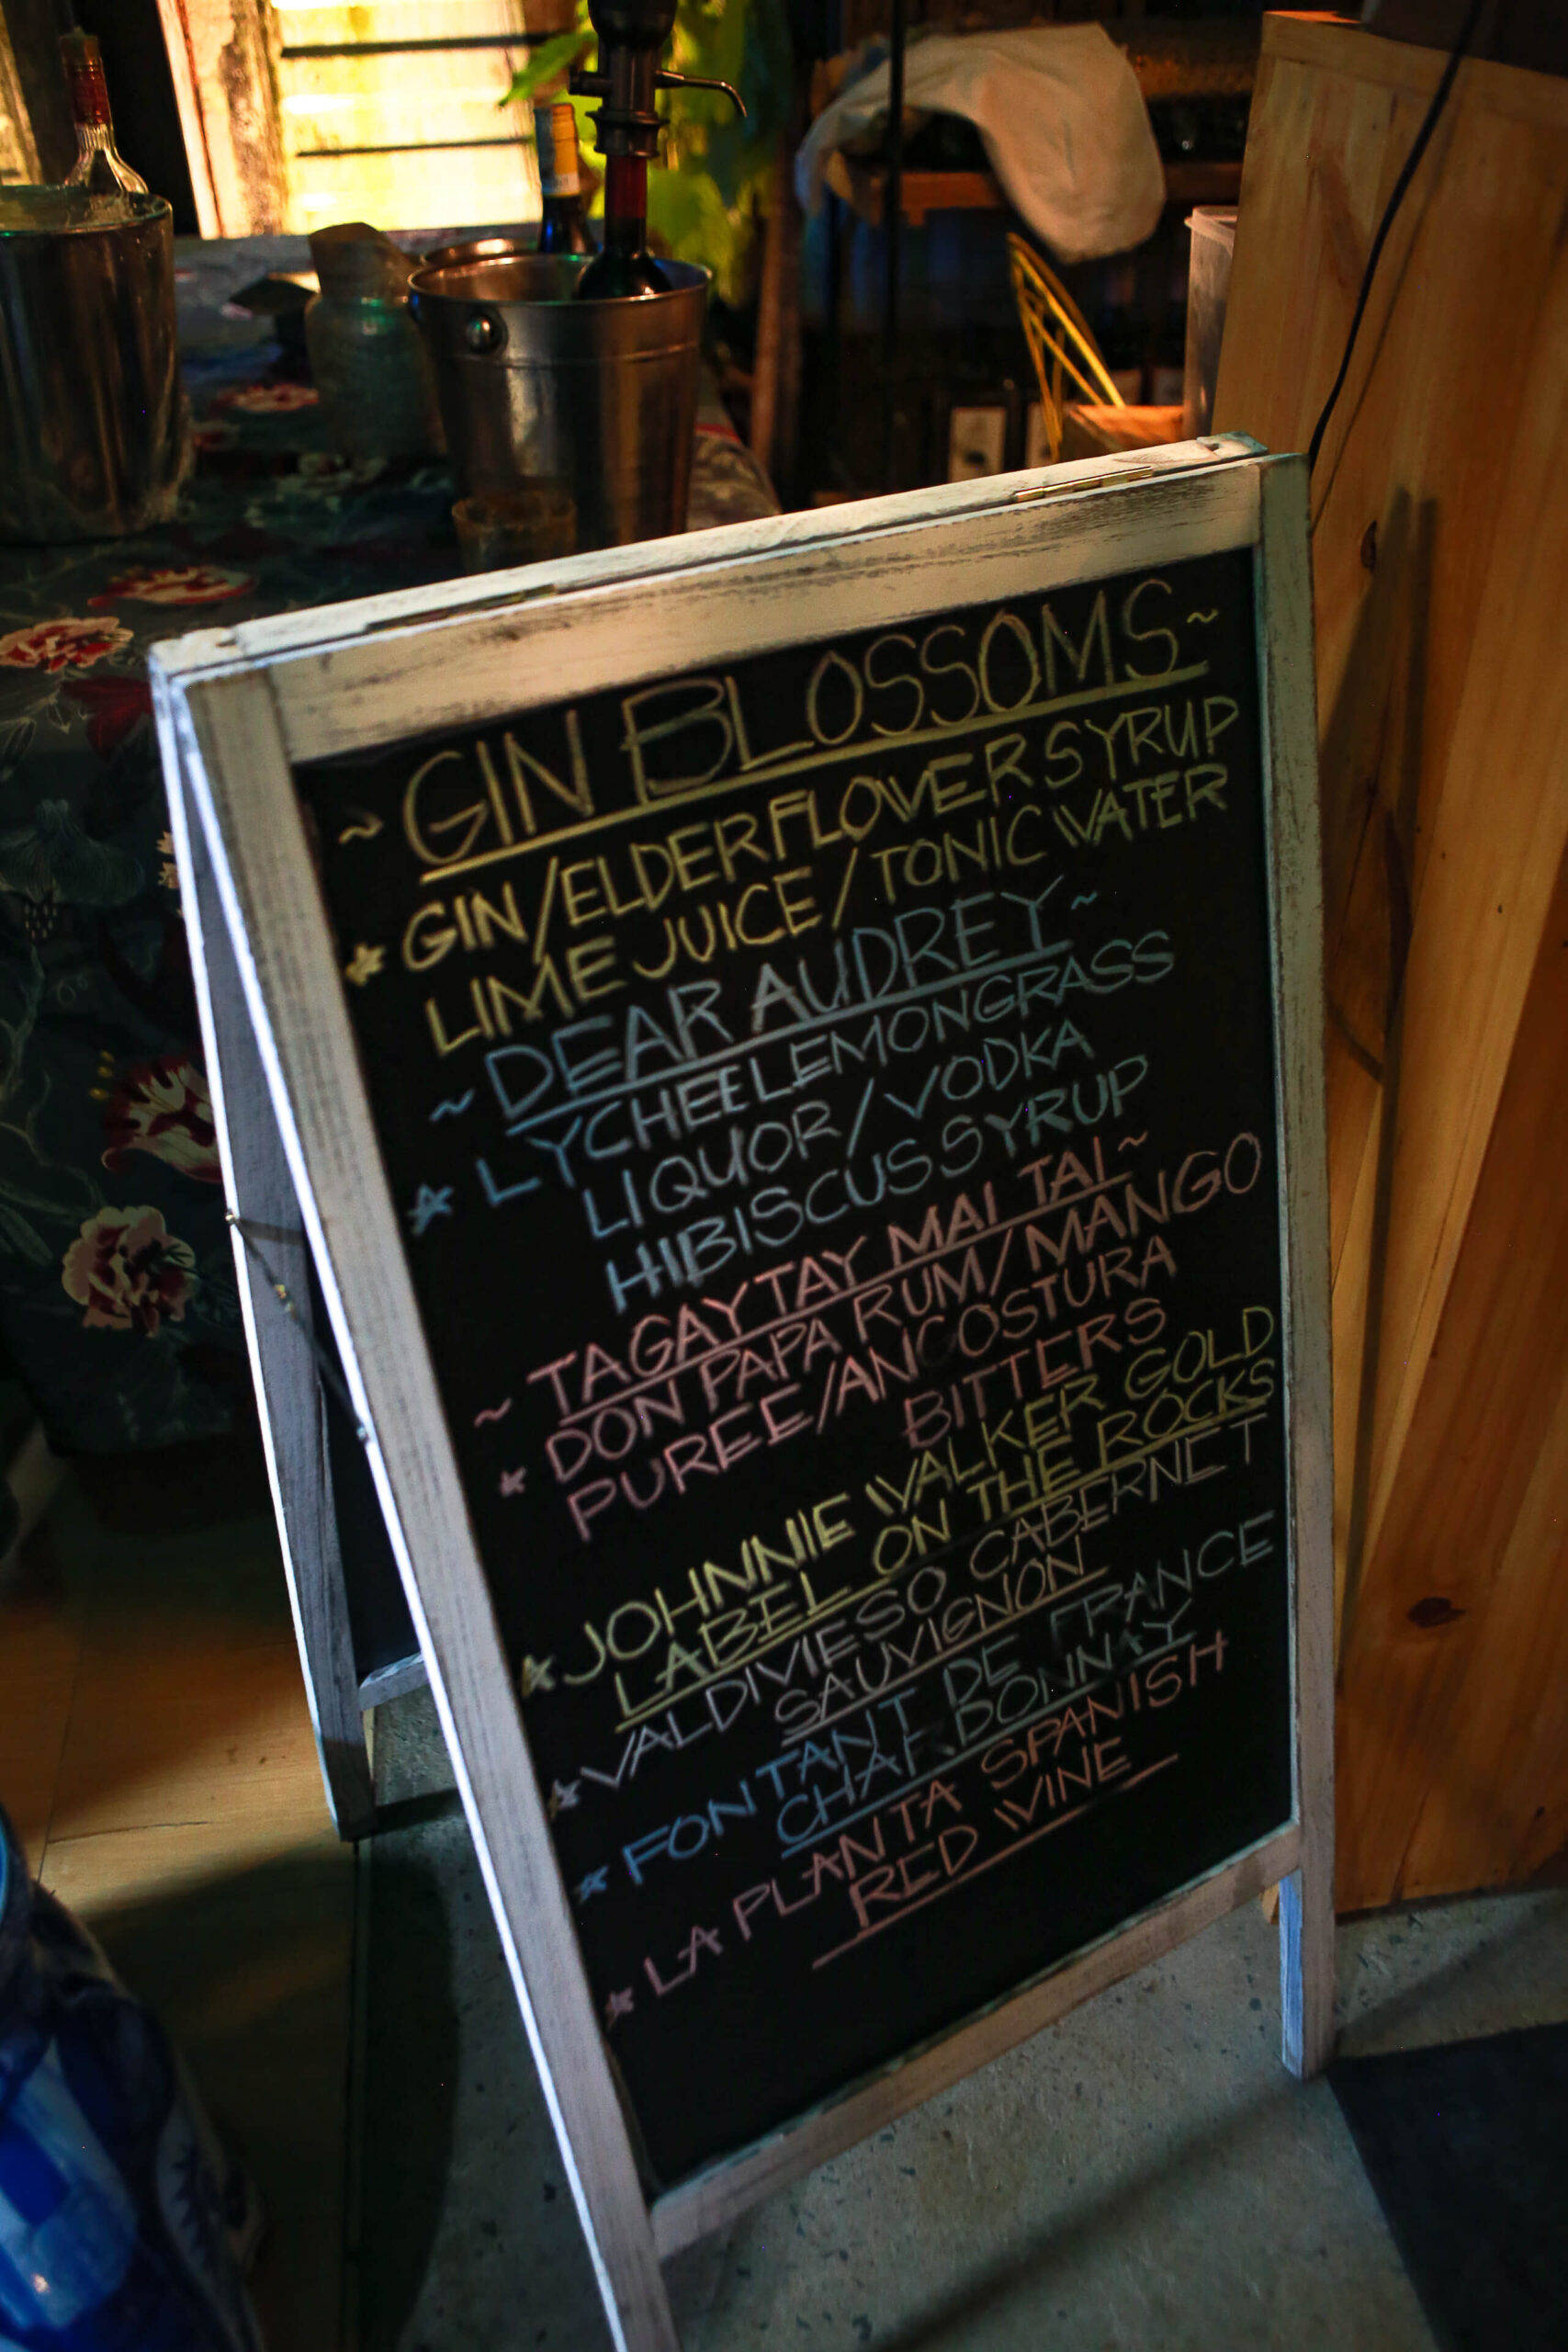 ~ GIN BLOSSOMS ~
* GIN/ELDERFLOWER SYRUP
LIME JUICE / TONIC WATER
~ DEAR AUDREY ~
* LYCHEE LEMONGRASS
LIQUOR / VODKA
HIBISCUS SYRUP
~ TAGAYTAY MAI TAI ~
* DON PAPA RUM/MANGO
PUREE/ANGOSTURA
BITTERS
* JOHNNIE WALKER GOLD
LABEL ON THE ROCKS
* VALDIVIESO CABERNET
SAUVIGNON
* FONTANT DE FRANCE
CHARDONNAY
* LA PLANTA SPANISH
RED WINE